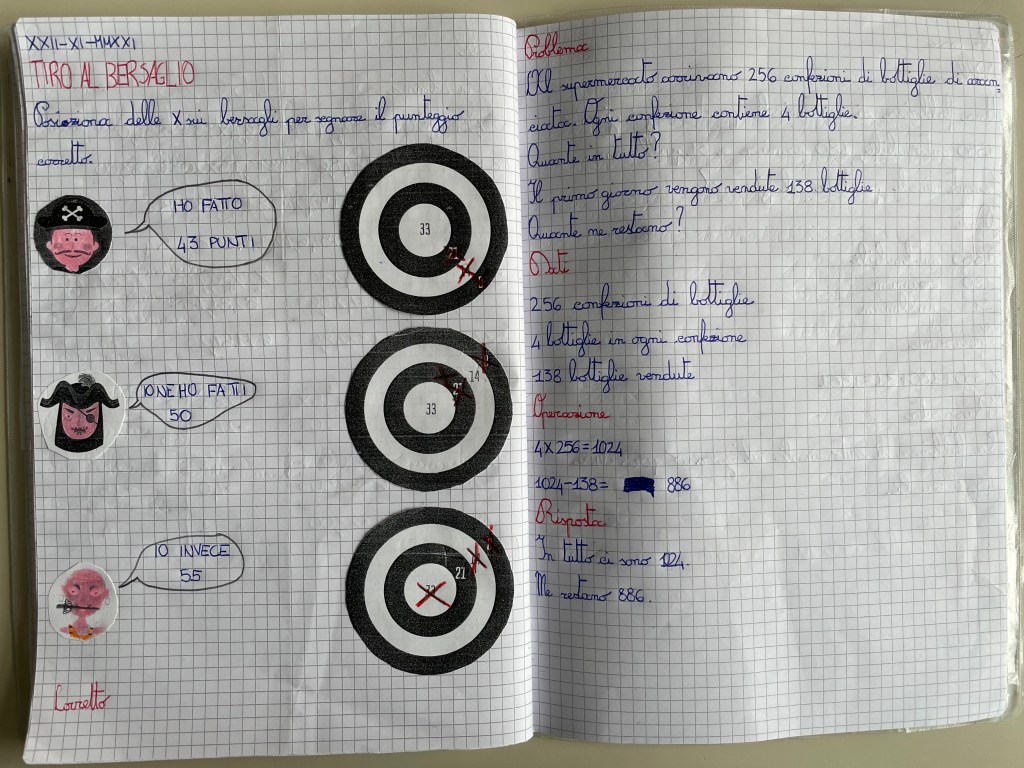 XXII-XI-MMXXI
TIRO AL BERSAGLIO
Posiziona delle X sui bersagli per segnare il punteggio
corretto.
HO FATTO
43 PUNTI
33
21
IO NE HO FATTI
50
14
21
33
IO INVECE
55
21
Corretto
Problema
Al supermercato arrivano 256 confezioni di bottiglie di aran-
ciata. Ogni confezione contiene 4 bottiglie.
Quante in tutto?
Il primo giorno vengono vendute 138 bottiglie
Quante ne restano?
Dati
256 confezioni di bottiglie
4 bottiglie in ogni confezione
138 bottiglie vendute
Operazione
4X256=1024
1024-138= 886
Risposta
In tutto ci sono 1024.
Ne restano 886.